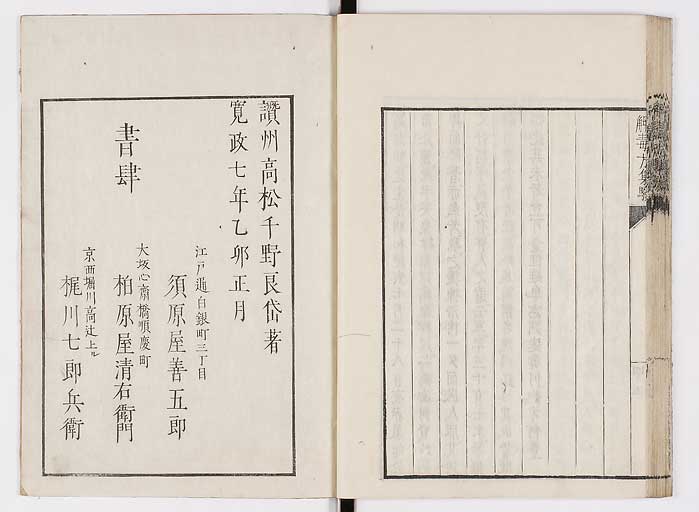 讃州高松千野良岱著
寛政七年乙卯正月
書肆
江戸通白銀町三丁目
須原屋善五郎
大坂心斎橋順慶町
柏原屋清右衛門
京西堀川高辻上ル
梶川七郎兵衛